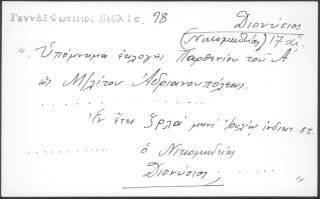 Γεννάδ[ε]ιος Βιβλ. 98
Διονύσιος
(Νικομηδείας) 17 αἰ.
"Ὑπόμνημα ἐκλογῆς Παρθενίου τοῦ Ἀ
ὡς Μ/λίτου Ἀδριανουπόλεως.
Ἐν ἔτει ξρλα μηνὶ Ἰουλίῳ ἰνδικτ. στ.
ὁ Νικομηδείας
Διονύσιος "